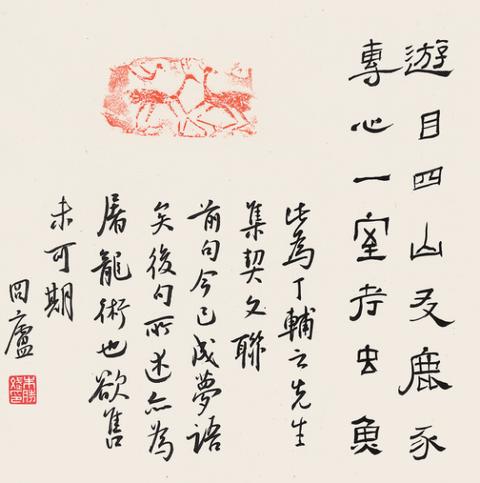 遊目四山友鹿豕
專心一室考虫魚
此為丁輔之先生
集契文聯
前句今已成夢語
矣後句所述亦為
屠龍術也欲售
未可期
廬